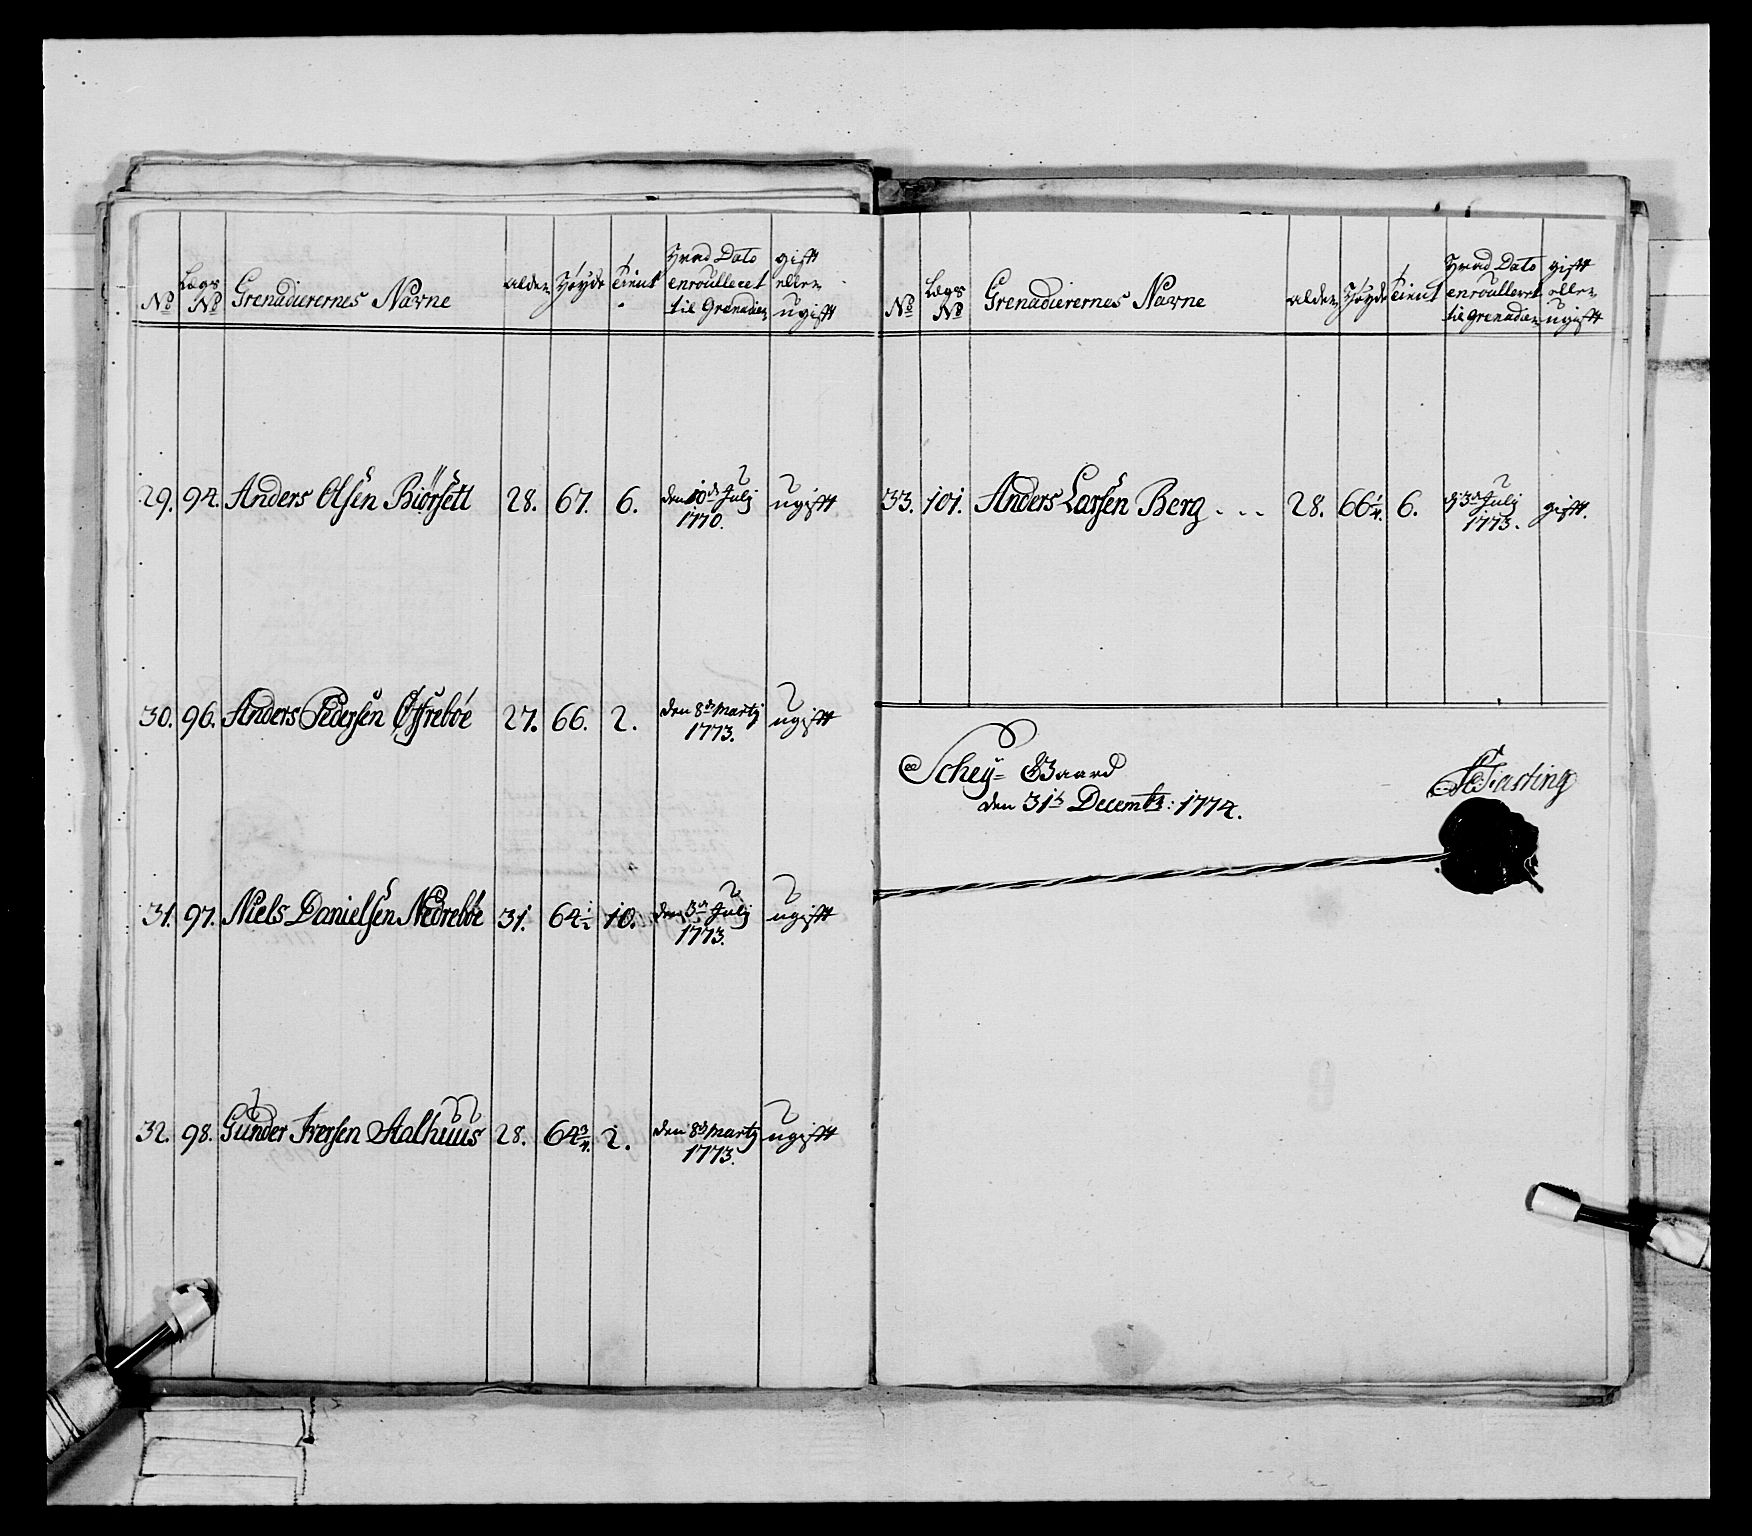 No | Lægs No | Grenadierernes Navne | alder | Høyde | tient | Hvad Dato enroulleret til Grenadeer | gift eller ugift
29. | 94. | Anders Olsen Biörsett | 28. | 67. | 6. | den 10de Julij 1770. | ugift
30. | 96. | Anders Pedersen Øffrebøe | 27. | 66. | 2. | den 8de Martij 1773. | ugift
31. | 97. | Niels Danielsen Nedrebøe | 31. | 64 1/2 | 10. | den 3de Julij 1773. | ugift
32. | 98. | Gunder Iversen Aalhuus | 28. | 64 3/4. | 2. | den 8de Martij 1773. | ugift
No | Lægs No | Grenadierernes Navne | alder | Høyde | tient | Hvad Dato enroulleret til Grenadeer | gift eller ugift
33. | 101. | Anders Larsen Berg . . . | 28. | 66 1/4. | 6. | d: 3de Julij 1773. | gift.
Schey= Gaard
den 31te Decembr: 1774.
Fasting